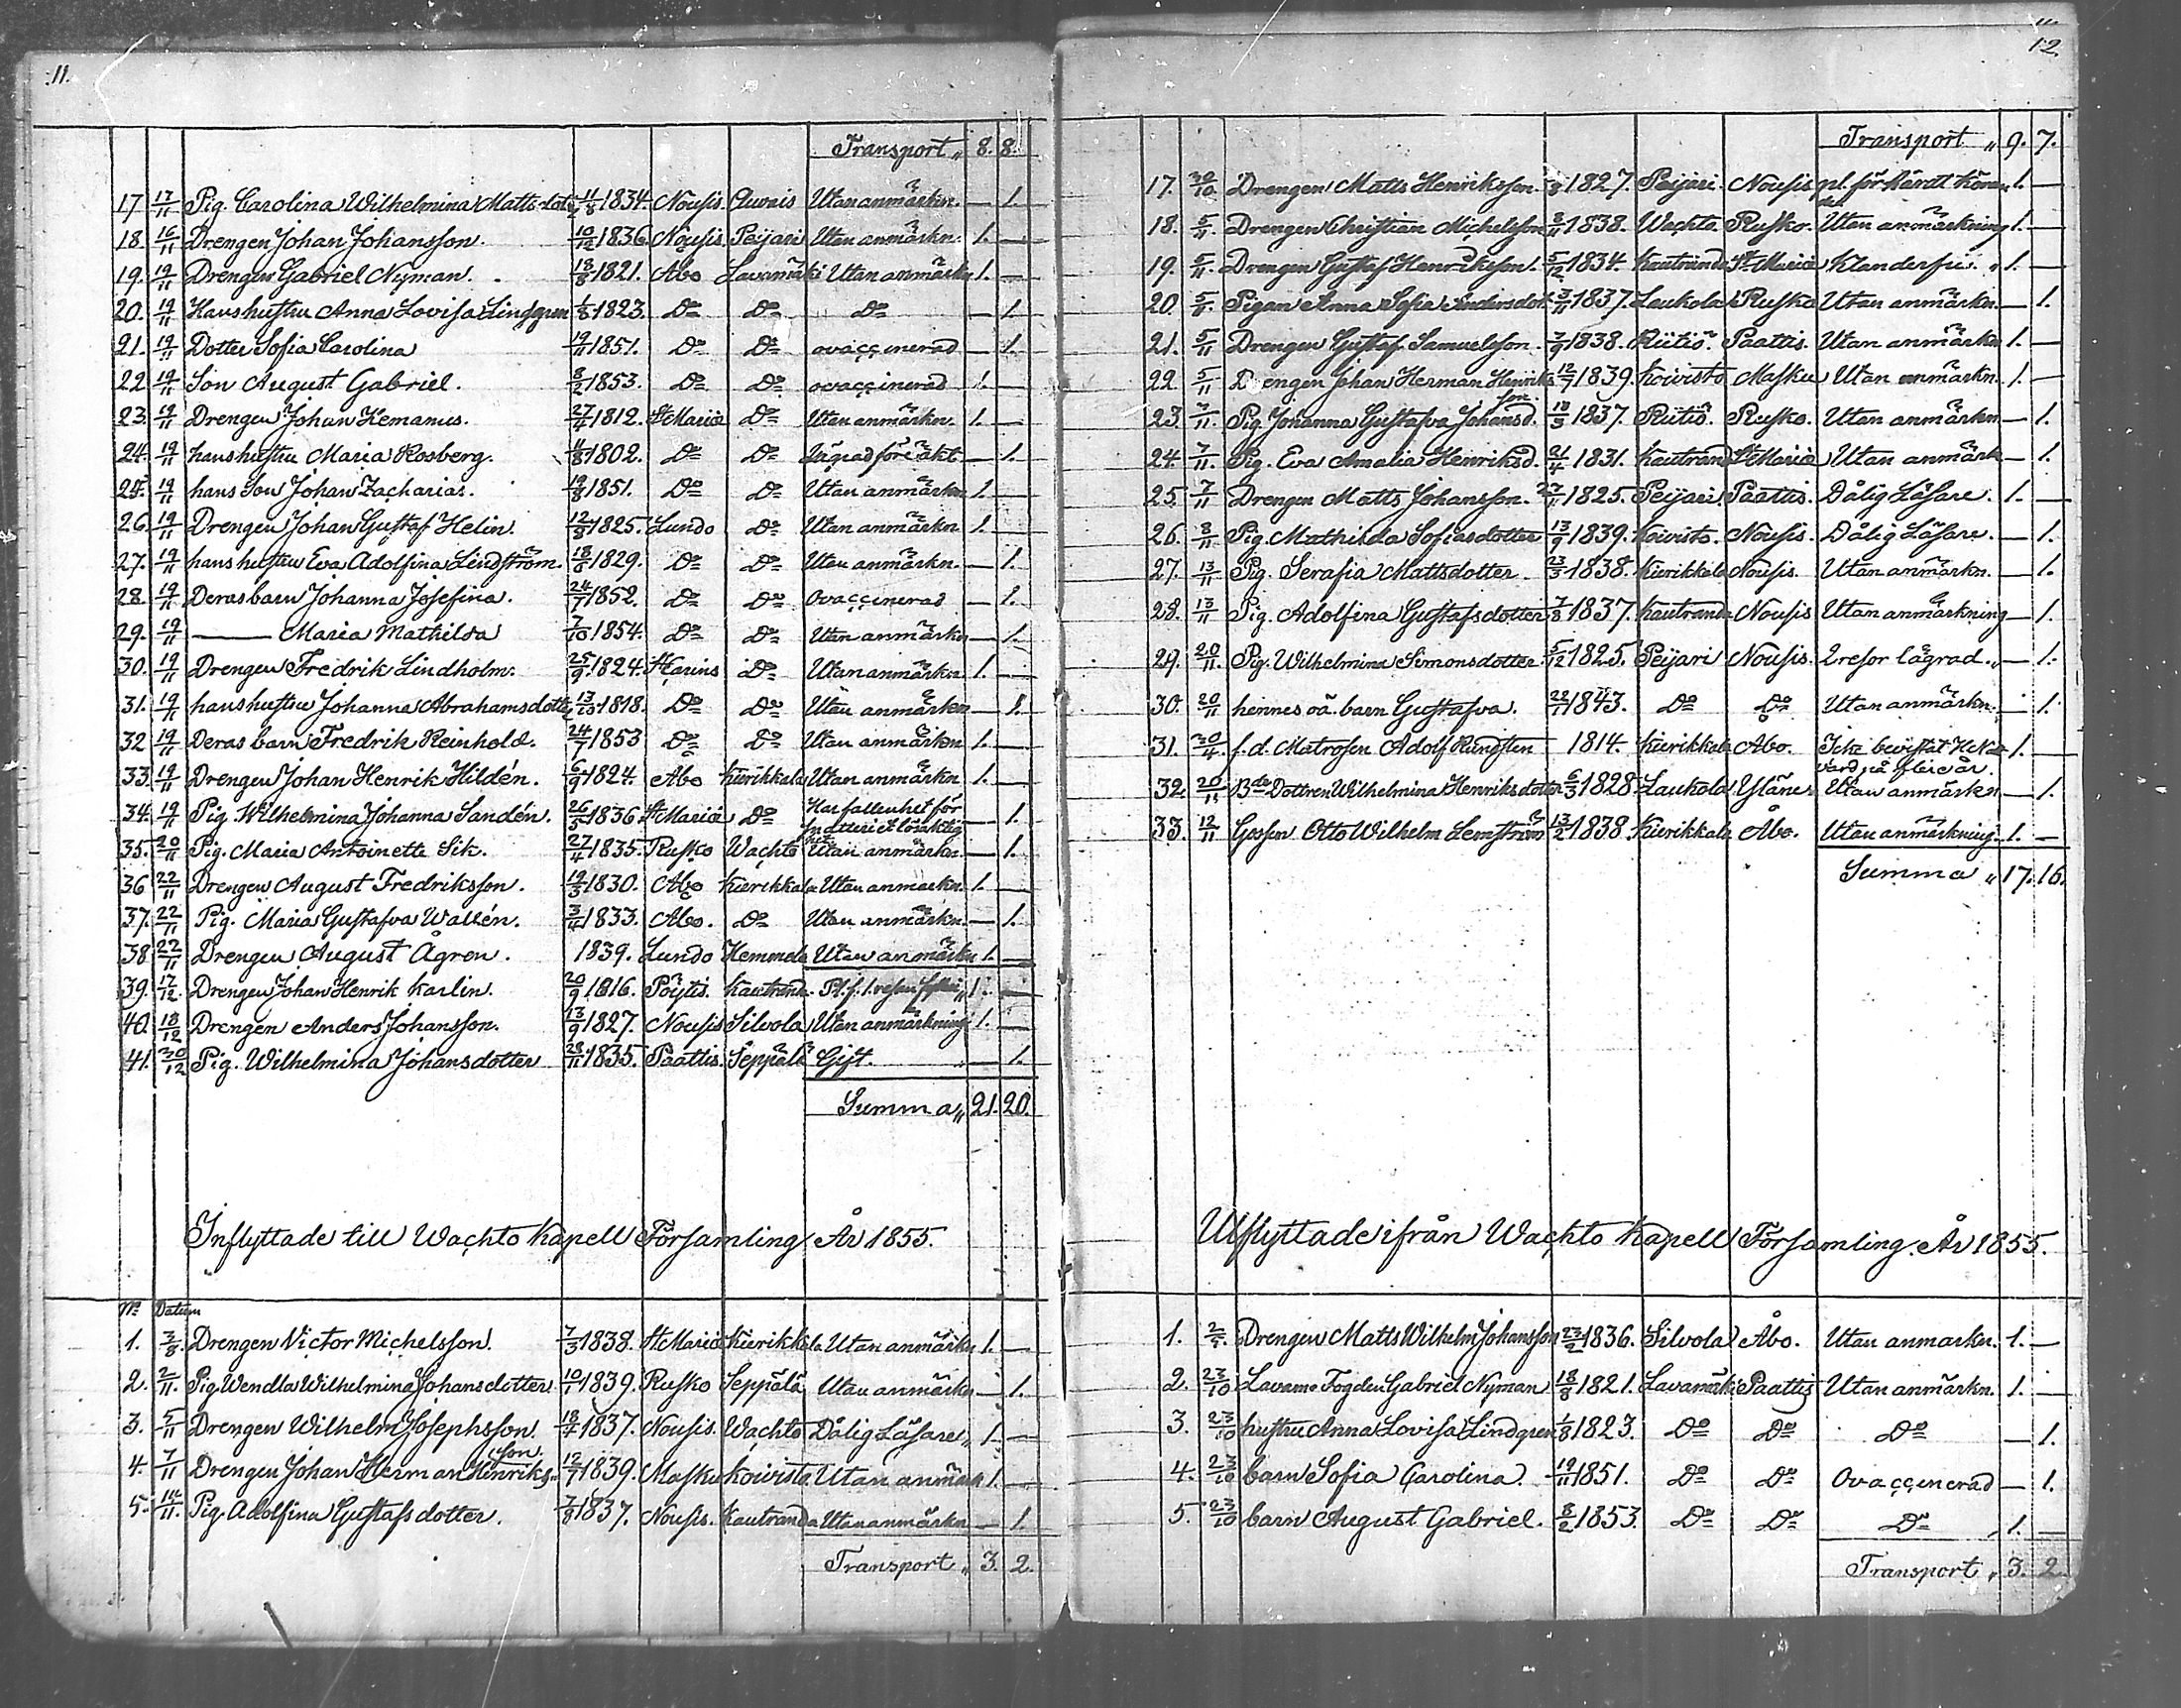 11.
Transport „ 8. 8.
17 17/11 Pig. Carolina Wilhelmina Matts dotter 4/8 1834. Nousis. Auvais Utan anmärkn. — 1.
18. 16/11 Drengen Johan Johansson. 10/12 1836 Nousis Peijari Utan anmärkn. 1. —
19. 19/11 Drengen Gabriel Nyman. 18/8 1821. Åbo Lavamäki Utan anmärkn 1. —
20. 19/11 Hans hustru Anna Lovisa Lindgren 1/8 1823. Do Do Do — 1.
21. 19/11 Dotter Sofia Carolina 19/11 1851. Do Do ovaccinerad — 1.
22 19/11 Son August Gabriel. 8/2 1853. Do Do ovaccinerad 1. —
23. 19/11 Drengen Johan Hemanus. 27/4 1812. St Mariæ Do Utan anmärkn. 1. —
24. 19/11 hans hustru Maria Rosberg. 4/8 1802. Do Do Lägrad för äkt — 1.
25. 19/11 hans Son Johan Zacharias. 19/8 1851. Do Do Utan anmärkn 1. —
26. 19/11 Drengen Johan Gustaf Helin. 12/9 1825. Lundo Do Utan anmärkn 1. —
27. 19/11 hans hustru Eva Adolfina Lindström. 18/6 1829. Do Do Utan anmärkn. — 1.
28. 19/11 Deras barn Johanna Josefina. 24/7 1852. Do Do Ovaccinerad — 1.
29. 19/11 —— Maria Mathilda 7/10 1854. Do Do Utan anmärkn — 1.
30. 19/11 Drengen Fredrik Lindholm. 25/9 1824. St Carins Do Utan anmärkn. 1. —
31. 19/11 hans hustru Johanna Abrahamsdotter 13/10 1818. Do Do Utan anmärkn — 1.
32 19/11 Deras barn Fredrik Reinhold. 24/7 1853 Do Do Utan anmärkn 1. —
33. 19/11 Drengen Johan Henrik Hildén. 6/9 1824. Åbo Kierikkala Utan anmärkn 1. —
34. 19/11 Pig. Wilhelmina Johanna Sandén. 26/5 1836 St Mariæ Do Har fallenhet för — 1.
35. 20/11 Pig. Maria Antoinette Sik. 27/4 1835. Rusko Wachto Utan anmärkn. — 1.
36 22/11 Drengen August Fredriksson. 19/3 1830. Åbo Kierikkala Utan anmärkn. 1. —
37. 22/11 Pig. Maria Gustafva Wallén. 3/4 1833. Åbo. Do Utan anmärkn. — 1.
38 22/11 Drengen August Ågren. 1839. Lundo Hemmela Utan anmärkn 1. —
39. 17/12. Drengen Johan Henrik Karlin. 20/9 1816. Pöytis. Kautranda. Pl. f. 1. resan fylleri „ 1. —
40. 18/12 Drengen Anders Johansson. 13/9 1827. Nousis Silvola Utan anmärkning 1. —
41. 30/12 Pig. Wilhelmina Johansdotter 28/11 1835. Paattis. Seppälä Gift. — 1.
Summa „ 21. 20.
Inflyttade till Wachto Kapell Församling År 1855.
No Datum
1. 3/8. Drengen Victor Michelsson. 7/3 1838. St Mariæ Kierikkala Utan anmärkn 1. —
2. 2/11. Pig. Wendla Wilhelmina Johansdotter 10/1 1839. Rusko Seppälä Utan anmärkn — 1.
3. 5/11 Drengen Wilhelm Josephsson. 18/4 1837. Nousis. Wachto Dålig Läsare „ 1. —
4. 7/11 Drengen Johan Herman Henrikson 12/7 1839. Masku Koivisto Utan anmärk 1. —
5. 14/11. Pig. Adolfina Gustafsdotter. 7/8 1837. Nousis. Kautranda Utan anmärkn — 1.
Transport „ 3. 2.
12.
Transport „ 9. 7.
17. 30/10 Drengen Matts Henriksson. 1827. Peijari. Nousis. pl. för hårdt köran 1. —
18. 5/11. Drengen Christian Michelsson 2/11 1838. Wachto. Rusko. Utan anmärkning 1. —
19. 5/11. Drengen Gustaf Henriksson. 5/12 1834. Kautranda St Mariæ Klanderfri. „ 1. —
20. 5/11. Pigan Anna Sofia Andersdot. 3/11 1837. Laukola Rusko Utan anmärkn. — 1.
21. 5/11 Drengen Gustaf Samuelsson. 7/9 1838. Riitiö. Paattis. Utan anmärkn 1. —
22. 5/11 Drengen Johan Herman Henrikson. 12/7 1839. Koivisto Masku Utan anmärkn. 1. —
23 7/11. Pig Johanna Gustafva Johansd. 18/3 1837. Riitiö. Rusko. Utan anmärkn. — 1.
24. 7/11. Pig. Eva Amalia Henriksd. 21/4 1831. Kautrand St Mariæ Utan anmärk — 1.
25. 7/11 Drengen Matts Johansson. 27/1 1825. Peijari. Paattis. Dålig Läsare. 1. —
26. 8/11 Pig. Mathilda Sofiasdotter 13/9 1839. Koivisto. Nousis. Dålig Läsare. — 1.
27. 13/11 Pig. Serafia Mattsdotter. 23/3 1838. Kierikkala Nousis. Utan anmärkn. — 1.
28. 13/11 Pig. Adolfina Gustafsdotter 7/8 1837. Kautranda Nousis Utan anmärkning — 1.
29. 20/11. Pig. Wilhelmina Simonsdotter 5/12 1825. Peijari Nousis. 2 resor lägrad. „ — 1.
30. 20/11 hennes oä. barn Gustafva. 22/1 1843. Do Do Utan anmärkn. — 1.
31. 30/4. f. d. Matrosen Adolf Rungsten 1814. Kierikkala Åbo. Icke bevistat HNatt- 1. —
vard på flere år.
32. 20/11 Bde Dottren Wilhelmina Henriksdotter 6/3 1828. Laukola. Yläne. Utan anmärkn — 1.
33. 12/11 Gossen Otto Wilhelm Lemström 13/2 1838. Kierikkala Åbo. Utan anmärkning. 1. —
Summa „ 17. 16.
Utflyttade ifrån Wachto Kapell Församling År 1855.
1. 2/5. Drengen Matts Wilhelm Johansson 23/2 1836. Silvola Åbo. Utan anmärkn. 1. —
2. 23/10 Lavamo Fogden Gabriel Nyman 18/8 1821. Lavamäki Paattis Utan anmärkn. 1. —
3. 23/10 hustru Anna Lovisa Lindgren 1/8 1823. Do Do Do — 1.
4. 23/10 barn Sofia Carolina. 19/11 1851. Do Do Ovaccinerad — 1.
5. 23/10 barn August Gabriel. 8/2 1853. Do Do Do 1. —
Transport „ 3. 2.